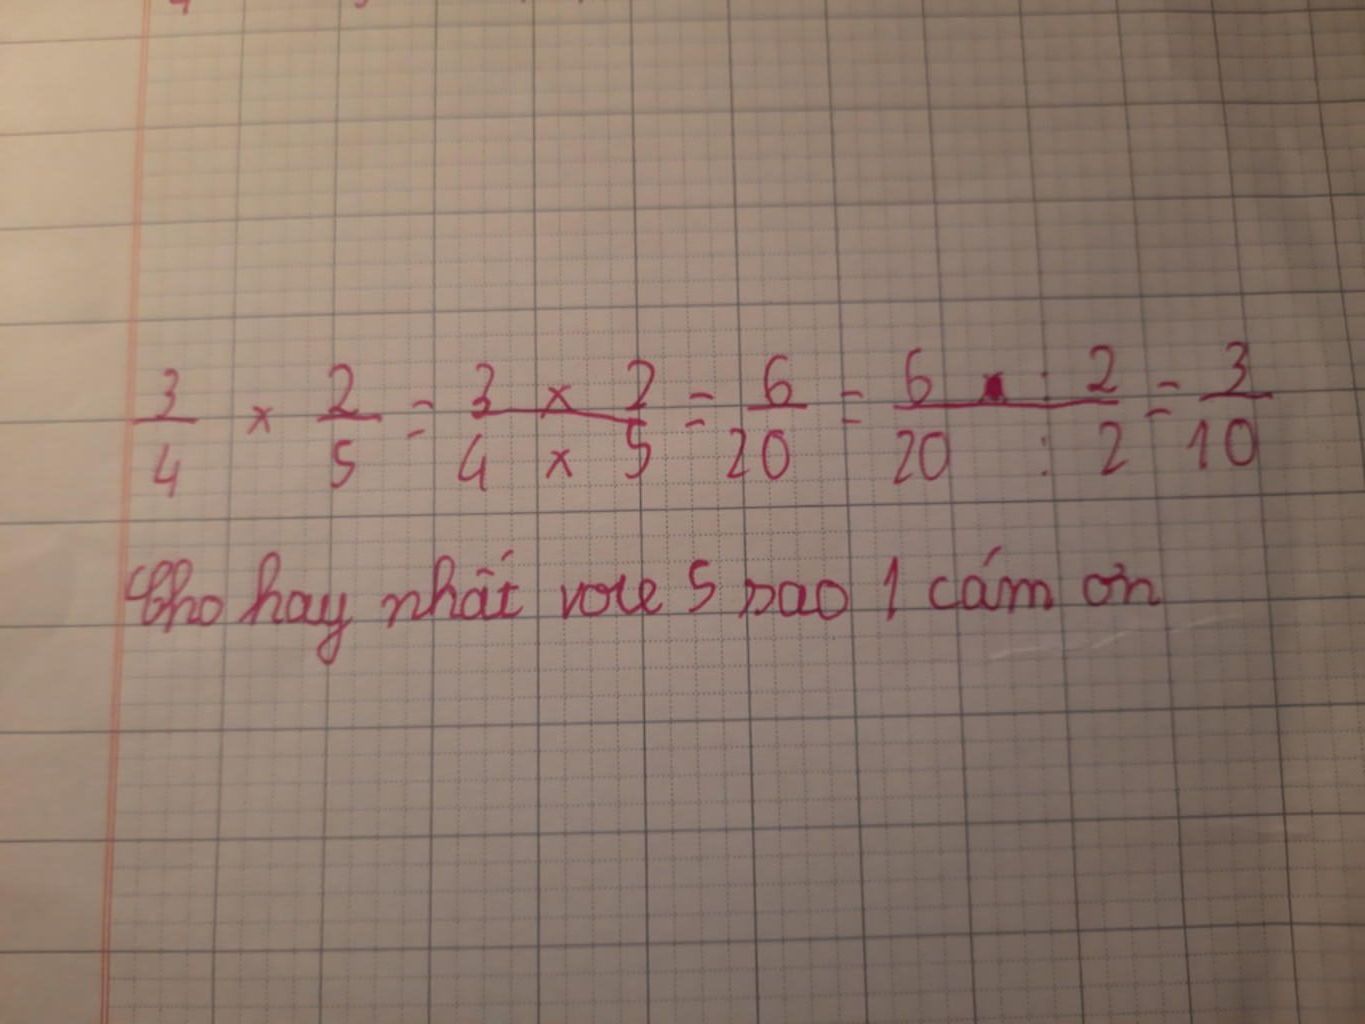 3/4 × 2/5 = 3 × 2 / 4 × 5 = 6/20 = 6 : 2 / 20 : 2 = 3/10
Cho hay nhất vote 5 sao 1 cám ơn